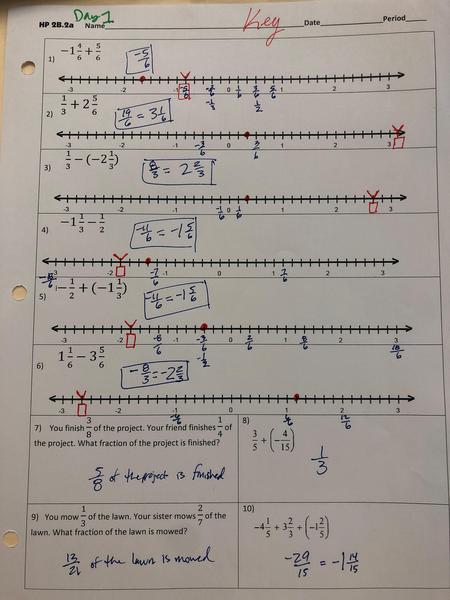 Day 1 Key
HP 2B.2a Name Date Period
1) -1 4/6 + 5/6
-5/6
-3 -2 -1 0 1 2 3
-5/6 -2/6 1/6 3/6 5/6
-1/3 1/2
2) 1/3 + 2 5/6
19/6 = 3 1/6
-3 -2 -1 0 1 2 3
-3/6 3/6
3) 1/3 - (-2 1/3)
8/3 = 2 2/3
-3 -2 -1 0 1 2 3
-1/6 1/6
4) -1 1/3 - 1/2
-11/6 = -1 5/6
-3 -2 -1 0 1 2 3
-18/6 -7/6 7/6
5) -1/2 + (-1 1/3)
-11/6 = -1 5/6
-3 -2 -1 0 1 2 3
-8/6 -3/6 2/6 8/6 18/6
-1/2
6) 1 1/6 - 3 5/6
-8/3 = -2 2/3
-3 -2 -1 0 1 2 3
-6/6 6/6 12/6
7) You finish 3/8 of the project. Your friend finishes 1/4 of
the project. What fraction of the project is finished?
5/8 of the project is finished
8)
3/5 + (-4/15)
1/3
9) You mow 1/3 of the lawn. Your sister mows 2/7 of the
lawn. What fraction of the lawn is mowed?
13/21 of the lawn is mowed
10)
-4 1/5 + 3 2/3 + (-1 2/5)
-29/15 = -1 14/15